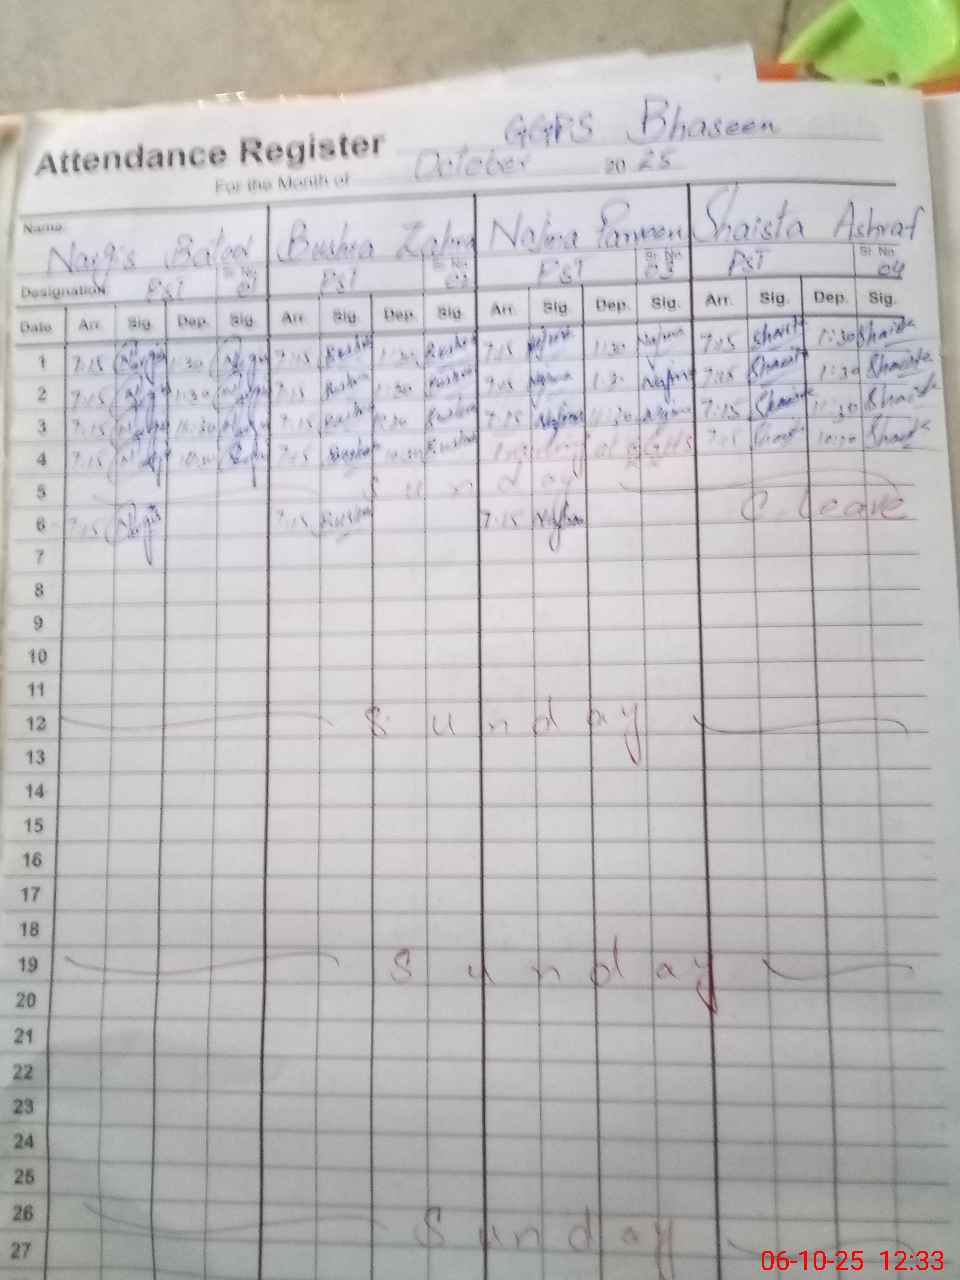 GGPS Bhaseen
Attendance Register
For the Month of October 2025
Name: Nargis Batool Bushra Zahra Najma Parveen Shaista Ashraf
Designation: PST Sr. No. 01 PST Sr. No. 02 PST Sr. No. 03 PST Sr. No. 04
Date Arr. Sig. Dep. Sig. Arr. Sig. Dep. Sig. Arr. Sig. Dep. Sig. Arr. Sig. Dep. Sig.
1 7:15 Nargis 1:30 Nargis 7:15 Bushra 1:30 Bushra 7:15 Najma 1:30 Najma 7:15 Shaista 1:30 Shaista
2 7:15 Nargis 1:30 Nargis 7:15 Bushra 1:30 Bushra 7:15 Najma 1:30 Najma 7:15 Shaista 1:30 Shaista
3 7:15 Nargis 11:30 Nargis 7:15 Bushra 11:30 Bushra 7:15 Najma 11:30 Najma 7:15 Shaista 11:30 Shaista
4 7:15 Nargis 7:15 Bushra Bushra at 7:15 Shaista Shaista
5 Sunday
6 7:15 Nargis 7:15 Bushra 7:15 Najma C. leave
7
8
9
10
11
12 Sunday
13
14
15
16
17
18
19 Sunday
20
21
22
23
24
25
26 Sunday
27
06-10-25 12:33